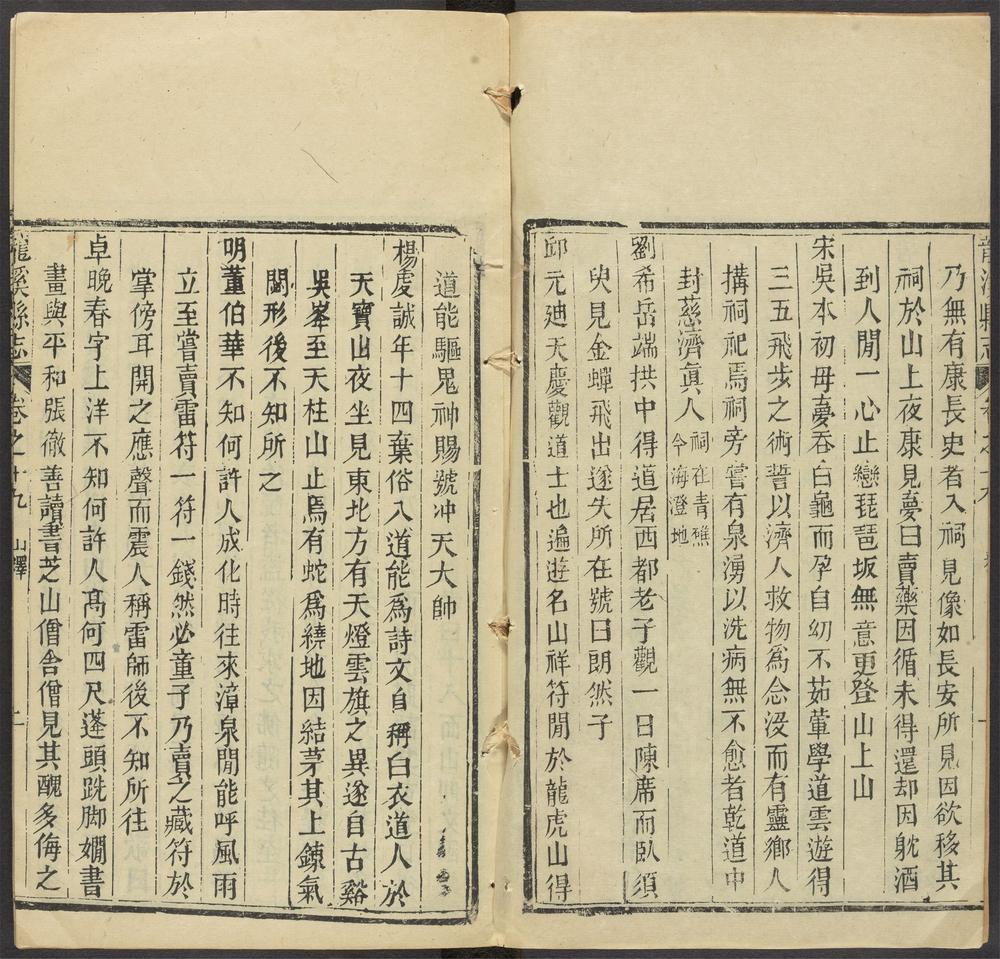 乃無有康長史者入祠見像如長安所見因欲移其
祠於山上夜康見夢曰賣藥因循未得還却因躭酒
到人閒一心止戀琵琶坂無意更登山上山
宋吳本初母夢吞白龜而孕自幼不茹葷學道雲遊得
三五飛步之術誓以濟人救物爲念沒而有靈鄉人
搆祠祀焉祠旁嘗有泉湧以洗病無不愈者乾道中
封慈濟眞人祠在青礁今海澄地
劉希岳端拱中得道居西都老子觀一日陳席而臥須
臾見金蟬飛出遂失所在號曰朗然子
邱元廸天慶觀道士也遍遊名山祥符閒於龍虎山得
道能驅鬼神賜號冲天大帥
楊虔誠年十四棄俗入道能爲詩文自稱白衣道人於
天寶山夜坐見東北方有天燈雲旗之異遂自古谿
吳峯至天柱山止焉有蛇爲繞地因結茅其上鍊氣
閟形後不知所之
明董伯華不知何許人成化時往來漳泉閒能呼風雨
立至嘗賣雷符一符一錢然必童子乃賣之藏符於
掌傍耳開之應聲而震人稱雷師後不知所往
卓晚春字上洋不知何許人髙何四尺蓬頭跣脚嫺書
畫與平和張徹善讀書芝山僧舍僧見其醜多侮之
龍溪縣志 卷之十九 山釋